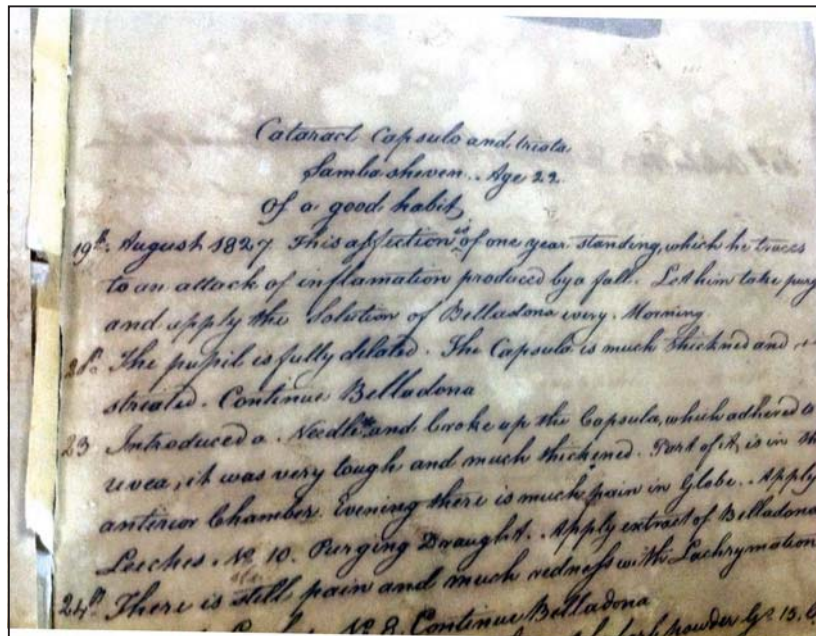 Cataract Capsulo and triata
Samba sheven. Age 22
Of a good habit
19th. August 1827 This affection is of one year standing, which he traces
to an attack of inflamation produced by a fall. Let him take purg
and apply the Solution of Belladona every. Morning
The pupil is fully delated. The Capsula is much thickned and
streated. Continue Belladona
23 Introduced a Needle and broke up the Capsula, which adhered to
uvea, it was very tough and much thickened. Part of it, is in th
anterior Chamber. Evening there is much pain in Globe. Apply
Leeches. No 10. Purging Draught. Apply extract of Belladona
24th There is still pain and much redness with Lachrymation
No 8. Continue Belladona
powder Gr 15.